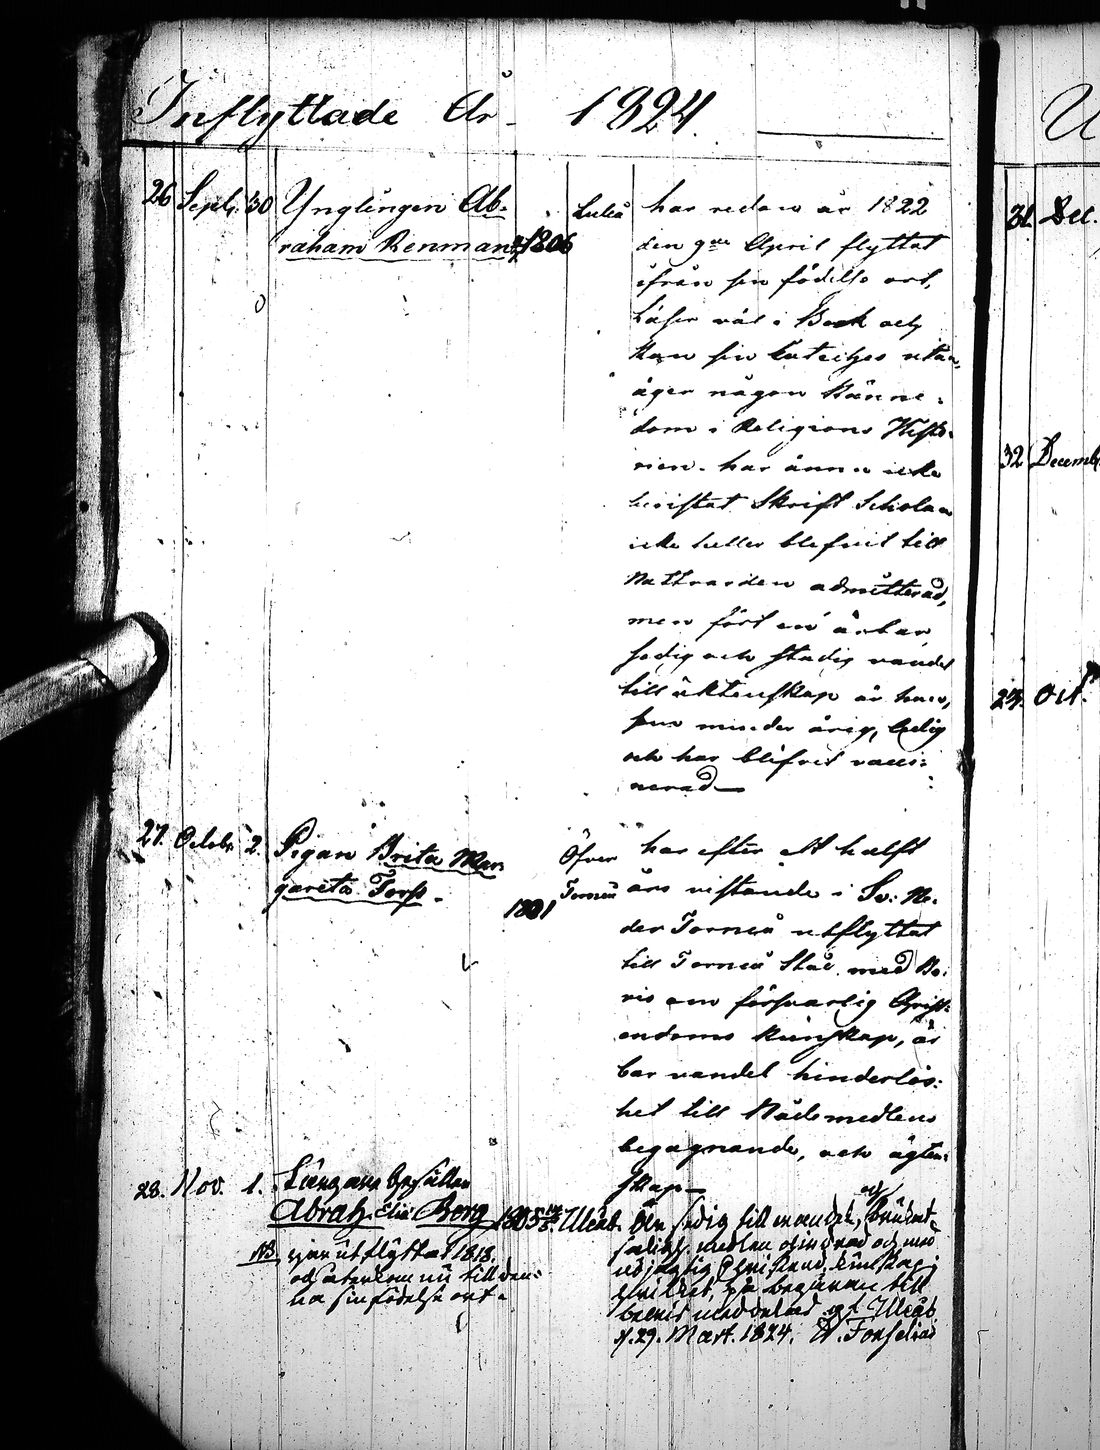 Inflyttade År 1824.
26 Sept. 30 Ynglingen Ab-
raham Renman 1806
Luleå
har redan år 1822
den 9de April flyttat
ifrån sin födelse ort,
Läser väl i Bock och
kan sin cateches utan,
äger någon känne-
dom i Religions Histo-
rien. har ännu icke
bevistat Skrift Scholan
icke heller blefvit till
Nattvarden admitterad,
men fört en ärbar,
sedig och stadig vandel
till äktenskap är han,
minder årig, ledig
och har blifvit vacci-
nerad
27. Octobr. 2. Pigan Brita Mar-
gareta Torp.
1801
Öfver
Torneå
har efter ett halft
års vistande i Sv: Ne-
der Torneå utflyttat
till Torneå Stad med Be-
vis om försvarlig Christ-
endoms kunskap, är-
bar vandel hinderlös-
het till Nådemedlens
begagnande, och ägten-
skap
28. Nov. 1. 
Abrah. Elia Berg 1805 Uleåb.
NB. utflyttat 1818.
och återkom nu till den-
na sin födelse ort.
sedig till vandel,
Uleåb
d. 29. Mart. 1824.
31. Dec.
32 Decemb.
23. Oct.